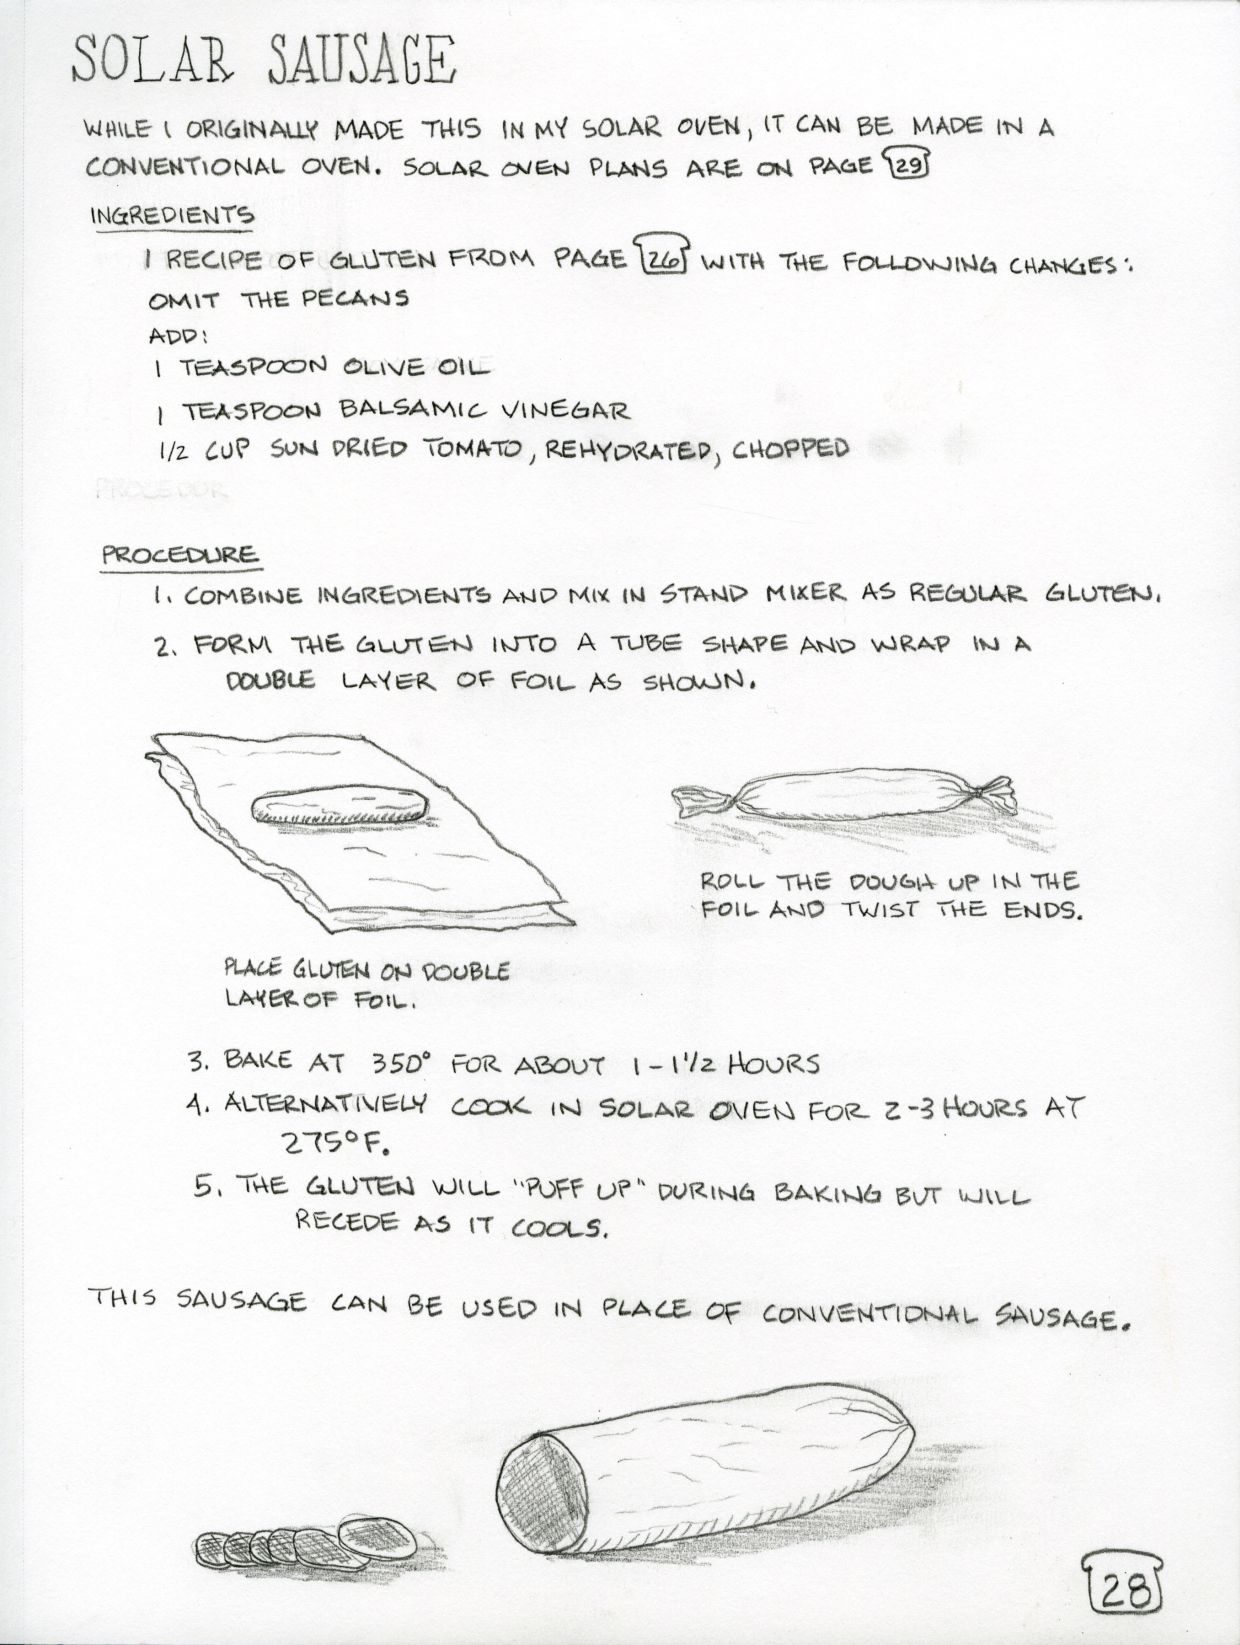 SOLAR SAUSAGE
WHILE I ORIGINALLY MADE THIS IN MY SOLAR OVEN, IT CAN BE MADE IN A
CONVENTIONAL OVEN. SOLAR OVEN PLANS ARE ON PAGE 29
INGREDIENTS
1 RECIPE OF GLUTEN FROM PAGE 26 WITH THE FOLLOWING CHANGES:
OMIT THE PECANS
ADD:
1 TEASPOON OLIVE OIL
1 TEASPOON BALSAMIC VINEGAR
1/2 CUP SUN DRIED TOMATO, REHYDRATED, CHOPPED
PROCEDUR
PROCEDURE
1. COMBINE INGREDIENTS AND MIX IN STAND MIXER AS REGULAR GLUTEN.
2. FORM THE GLUTEN INTO A TUBE SHAPE AND WRAP IN A
DOUBLE LAYER OF FOIL AS SHOWN.
ROLL THE DOUGH UP IN THE
FOIL AND TWIST THE ENDS.
PLACE GLUTEN ON DOUBLE
LAYER OF FOIL.
3. BAKE AT 350° FOR ABOUT 1-1 1/2 HOURS
4. ALTERNATIVELY COOK IN SOLAR OVEN FOR 2-3 HOURS AT
275°F.
5. THE GLUTEN WILL "PUFF UP" DURING BAKING BUT WILL
RECEDE AS IT COOLS.
THIS SAUSAGE CAN BE USED IN PLACE OF CONVENTIONAL SAUSAGE.
28